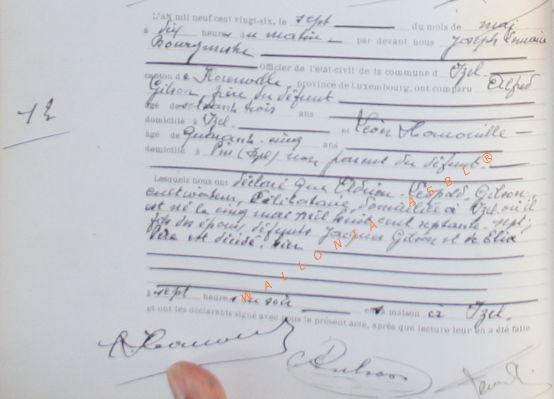 L'AN mil neuf cent vingt-six, le sept du mois de mai
à dix heures du matin par devant nous Joseph
Bourgmestre Officier de l'état-civil de la commune d' Izel
canton de Florenville province de Luxembourg, ont comparu Alfred
Gilson, frère du défunt
âgé de soixante trois ans
domicilié à Izel et Léon
âgé de Quarante-cinq ans
domicilié à Pin (Izel) non parent du défunt.
12
Lesquels nous ont déclaré que Adrien-Léopold Gilson,
cultivateur, Célibataire, domicilié à Izel où il
est né le cinq mai mil huit cent septante-sept,
fils des époux, défunts Jacques Gilson et de
est décédé hier
à sept heures du soir en sa maison à Izel.
et ont les déclarants signé avec nous le présent acte, après que lecture leur en a été faite
WALLONIA ASBL ®